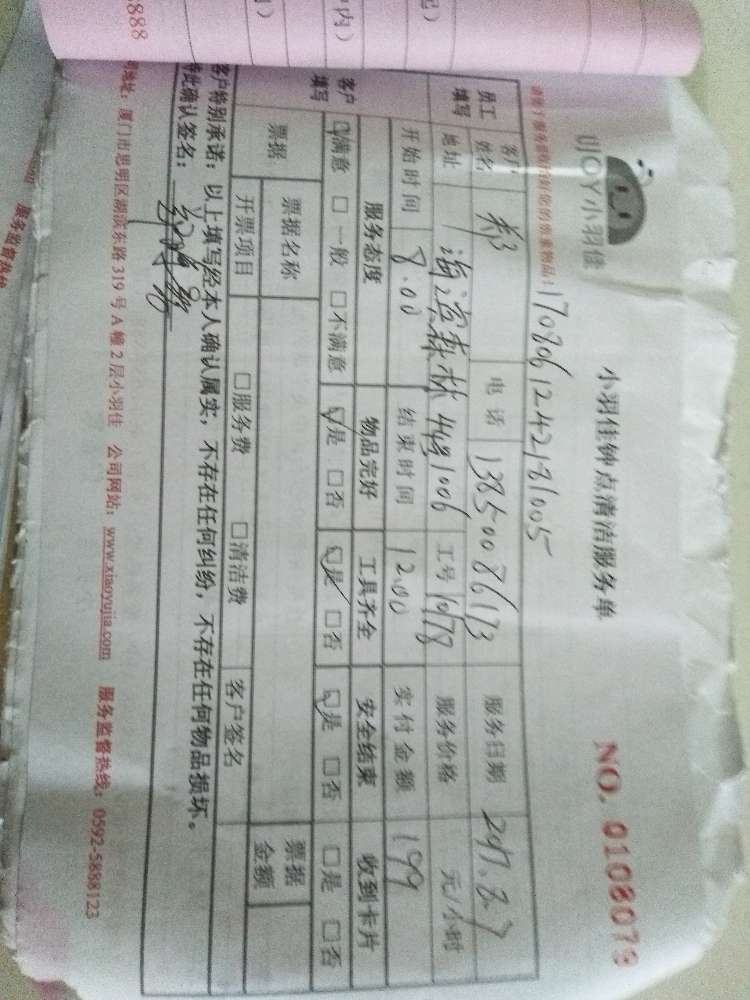 888
己)
户内)
目)
小羽佳
小羽佳钟点清洁服务单
NO. 0108079
请您于服务前收拾好您的贵重物品: 1708061242181005
员工填写
客户姓名 郑 电话 13850086173 服务日期 2017.8.7
地址 海沧森林 工号 1078 服务价格 元/小时
开始时间 8.00 结束时间 12.00 实付金额 199
客户填写
服务态度 物品完好 工具齐全 安全结束 收到卡片
☑满意 □一般 □不满意 ☑是 □否 ☑是 □否 ☑是 □否 □是 □否
票据 票据名称 票据金额
开票项目 □服务费 □清洁费 客户签名
客户特别承诺:以上填写经本人确认属实,不存在任何纠纷,不存在任何物品损坏。
特此确认签名:
司地址:厦门市思明区湖滨东路 319 号 A 幢 2 层小羽佳 公司网站:www.xiaoyujia.com 服务监督热线:0592-5888123
服务监督热